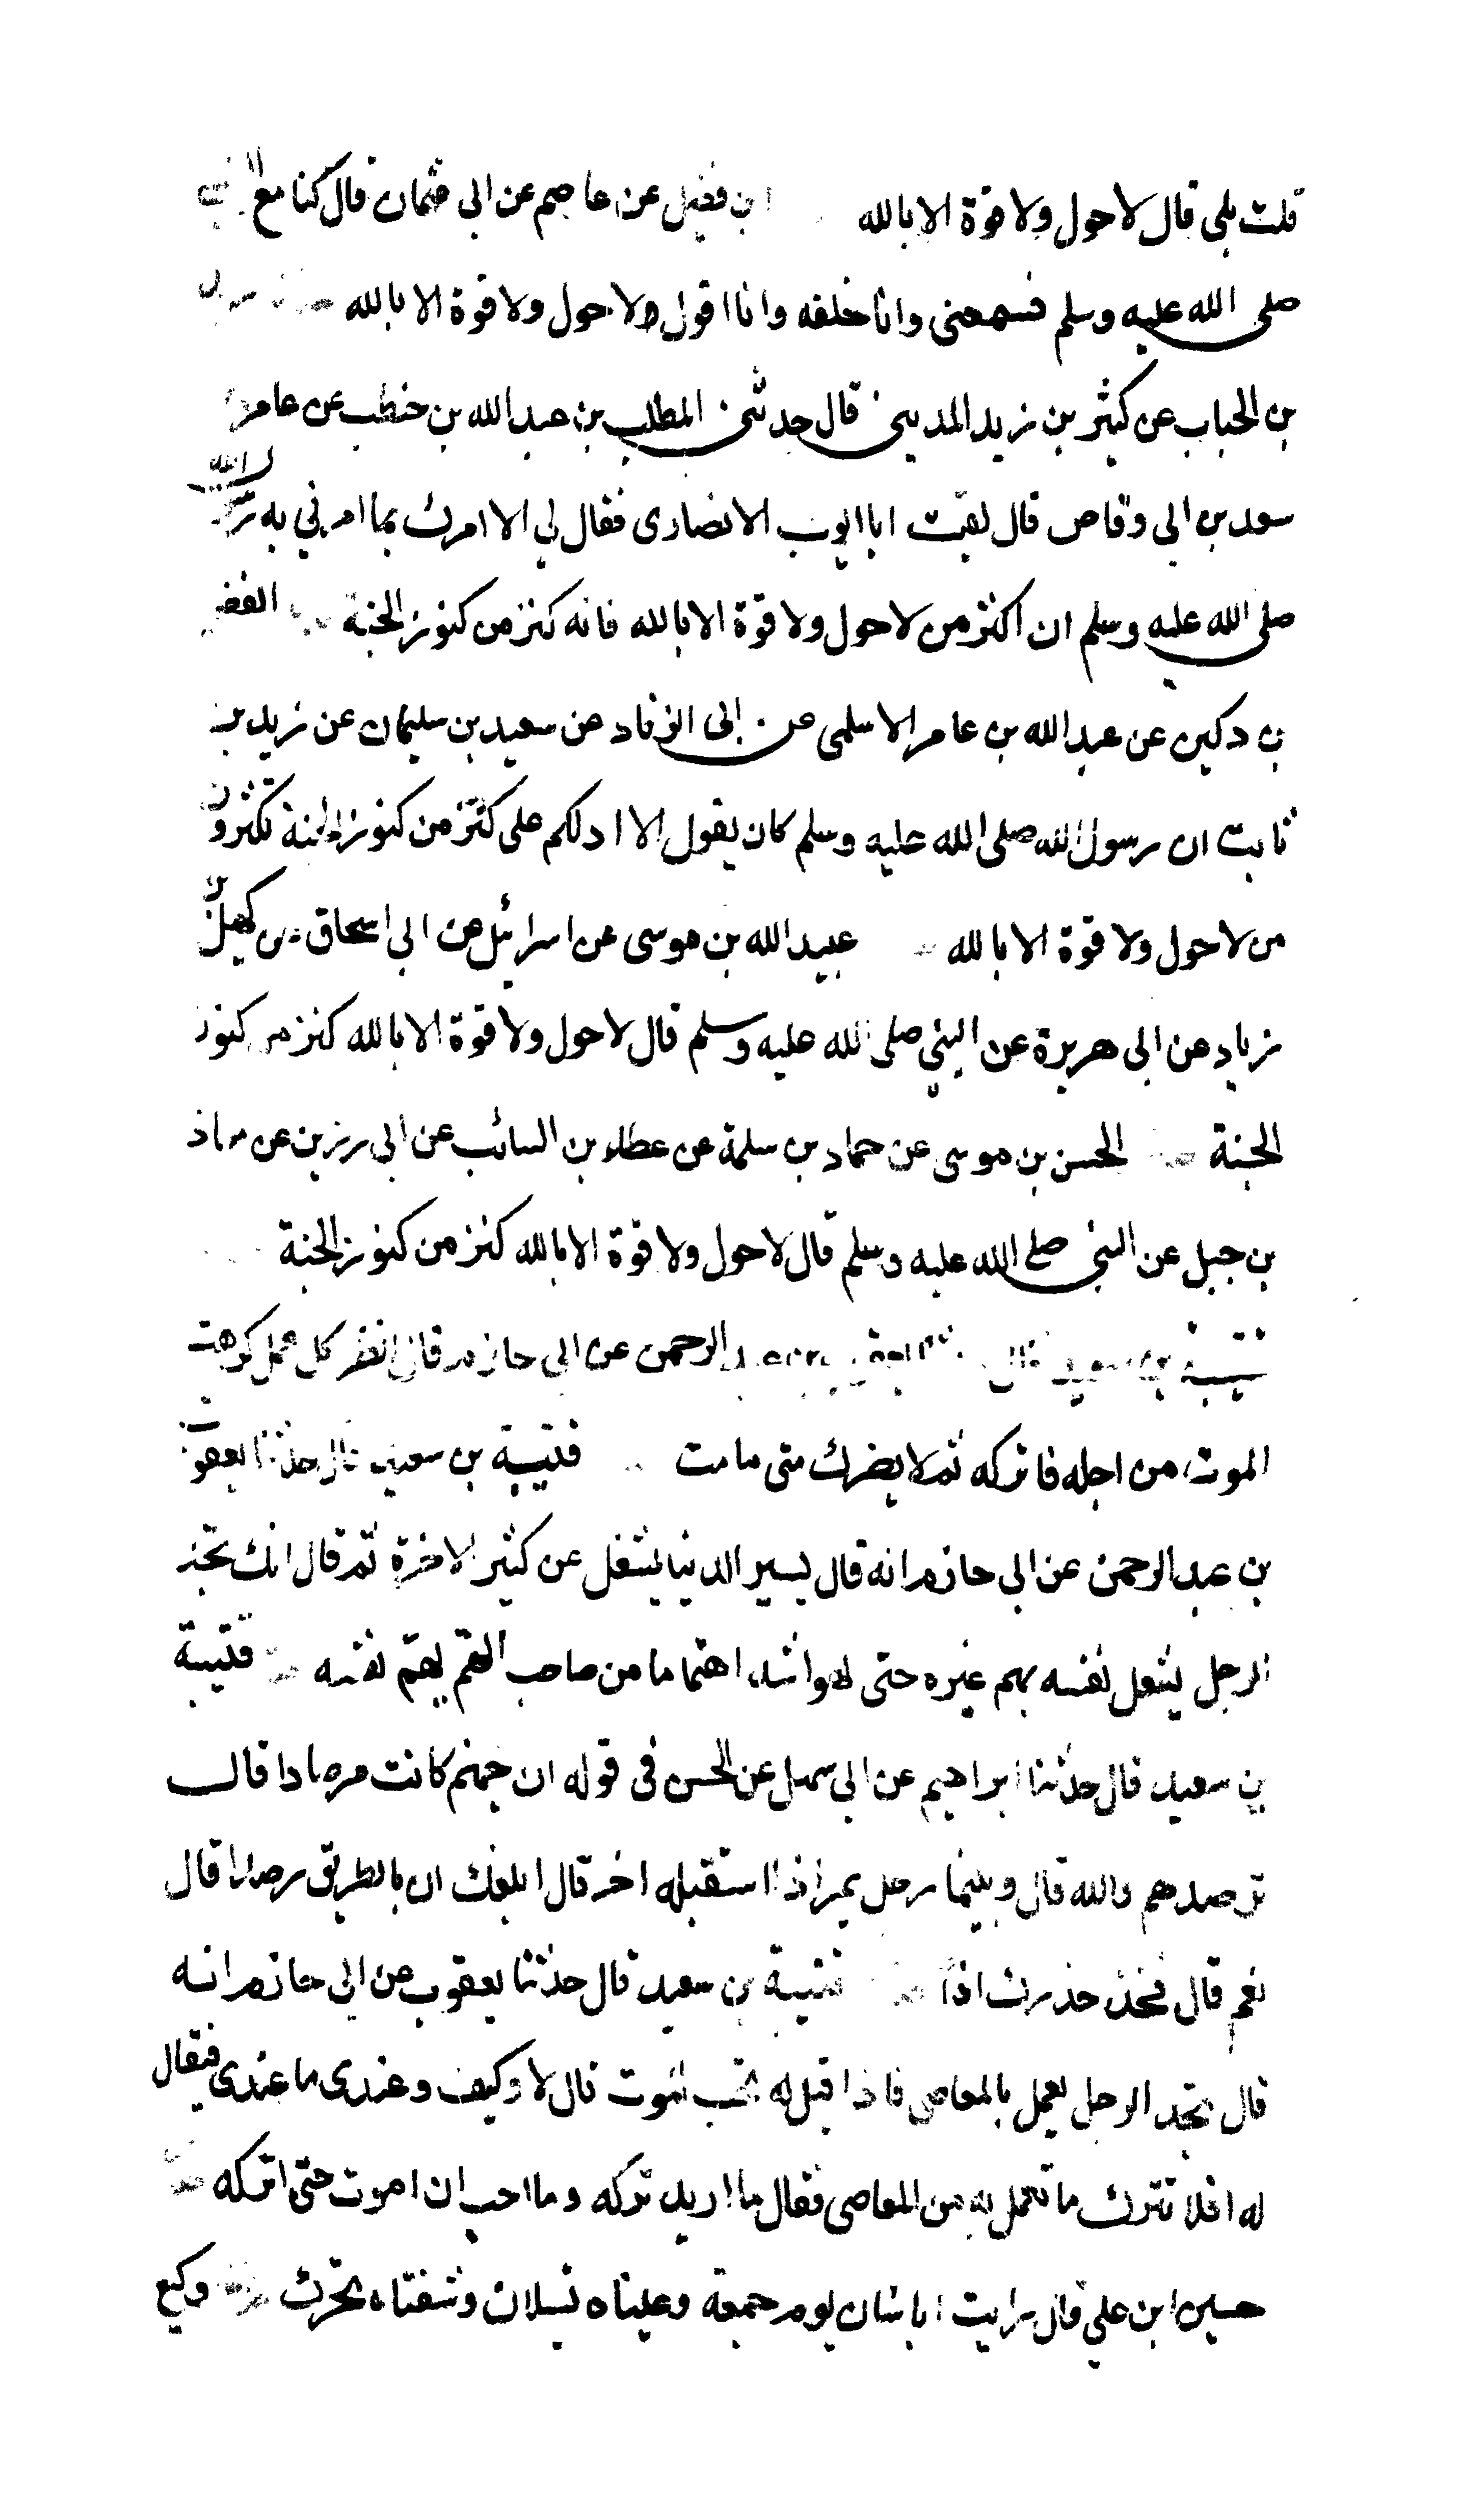 قلت بلى قال لاحول ولا قوة الا بالله ابن فضيل عن عاصم عن ابى عثمان قال كنا مع النبى
صلى الله عليه وسلم فسمعنى وانا خلفه وانا اقول ولا حول ولا قوة الا بالله
بن الحباب عن كثير بن زيد المدينى قال حدثنى المطلب بن عبد الله بن حنطب عن عامر
سعد بن ابى وقاص قال لقيت ابا ايوب الانصارى فقال لي الا امرك بما امرني به
صلى الله عليه وسلم ان اكثر من لاحول ولا قوة الا بالله فانه كنز من كنوز الجنة الفضل
بن دكين عن عبد الله بن عامر الاسلمى عن ابى الزناد عن سعيد بن سليمان عن زيد بن
ثابت ان رسول الله صلى الله عليه وسلم كان يقول الا ادلكم على كنز من كنوز الجنة تكثرون
من لاحول ولا قوة الا بالله عبيد الله بن موسى عن اسرائيل عن ابي اسحاق عن كهيل بن
زياد عن ابى هريرة عن النبي صلى الله عليه وسلم قال لاحول ولا قوة الا بالله كنز من كنوز
الجنة الحسن بن موسى عن حماد بن سلمة عن عطاء بن السائب عن ابي رزين عن معاذ
بن جبل عن النبي صلى الله عليه وسلم قال لاحول ولا قوة الا بالله كنز من كنوز الجنة
قتيبة بن سعيد قال الرحمن عن ابى حازم قال انظر كل عمل كرهت
الموت من اجله فاتركه ثم لا يضرك متى مامت قتيبة بن سعيد قال حدثنا يعقوب
بن عبد الرحمن عن ابى حازم انه قال يسير الدنيا يشغل عن كثير الاخرة ثم قال انك تجد
الرجل يشغل نفسه بهم غيره حتى لهو اشد اهتماما من صاحب الهم بهم نفسه قتيبة
بن سعيد قال حدثنا ابراهيم عن ابي سهل عن الحسن فى قوله ان جهنم كانت مرصادا قال
ترصدهم والله قال وبينما رجل يمر اذ استقبله اخر قال ابلغك ان بالطريق رصدا قال
نعم قال فخذ حذرك اذاً قتيبة بن سعيد قال حدثنا يعقوب عن ابي حازم انه
قال تجد الرجل يعمل بالمعاصى فاذا قيل له تحب الموت قال لا وكيف وعندى ما عندى فيقال
له افلا تترك ما تعمل به من المعاصى فقال ما اريد تركه وما احب ان اموت حتى اتركه
حسين ابن علي قال رايت ابا سنان يوم جمعة وعيناه تسيلان وشفتاه تحرك وكيع